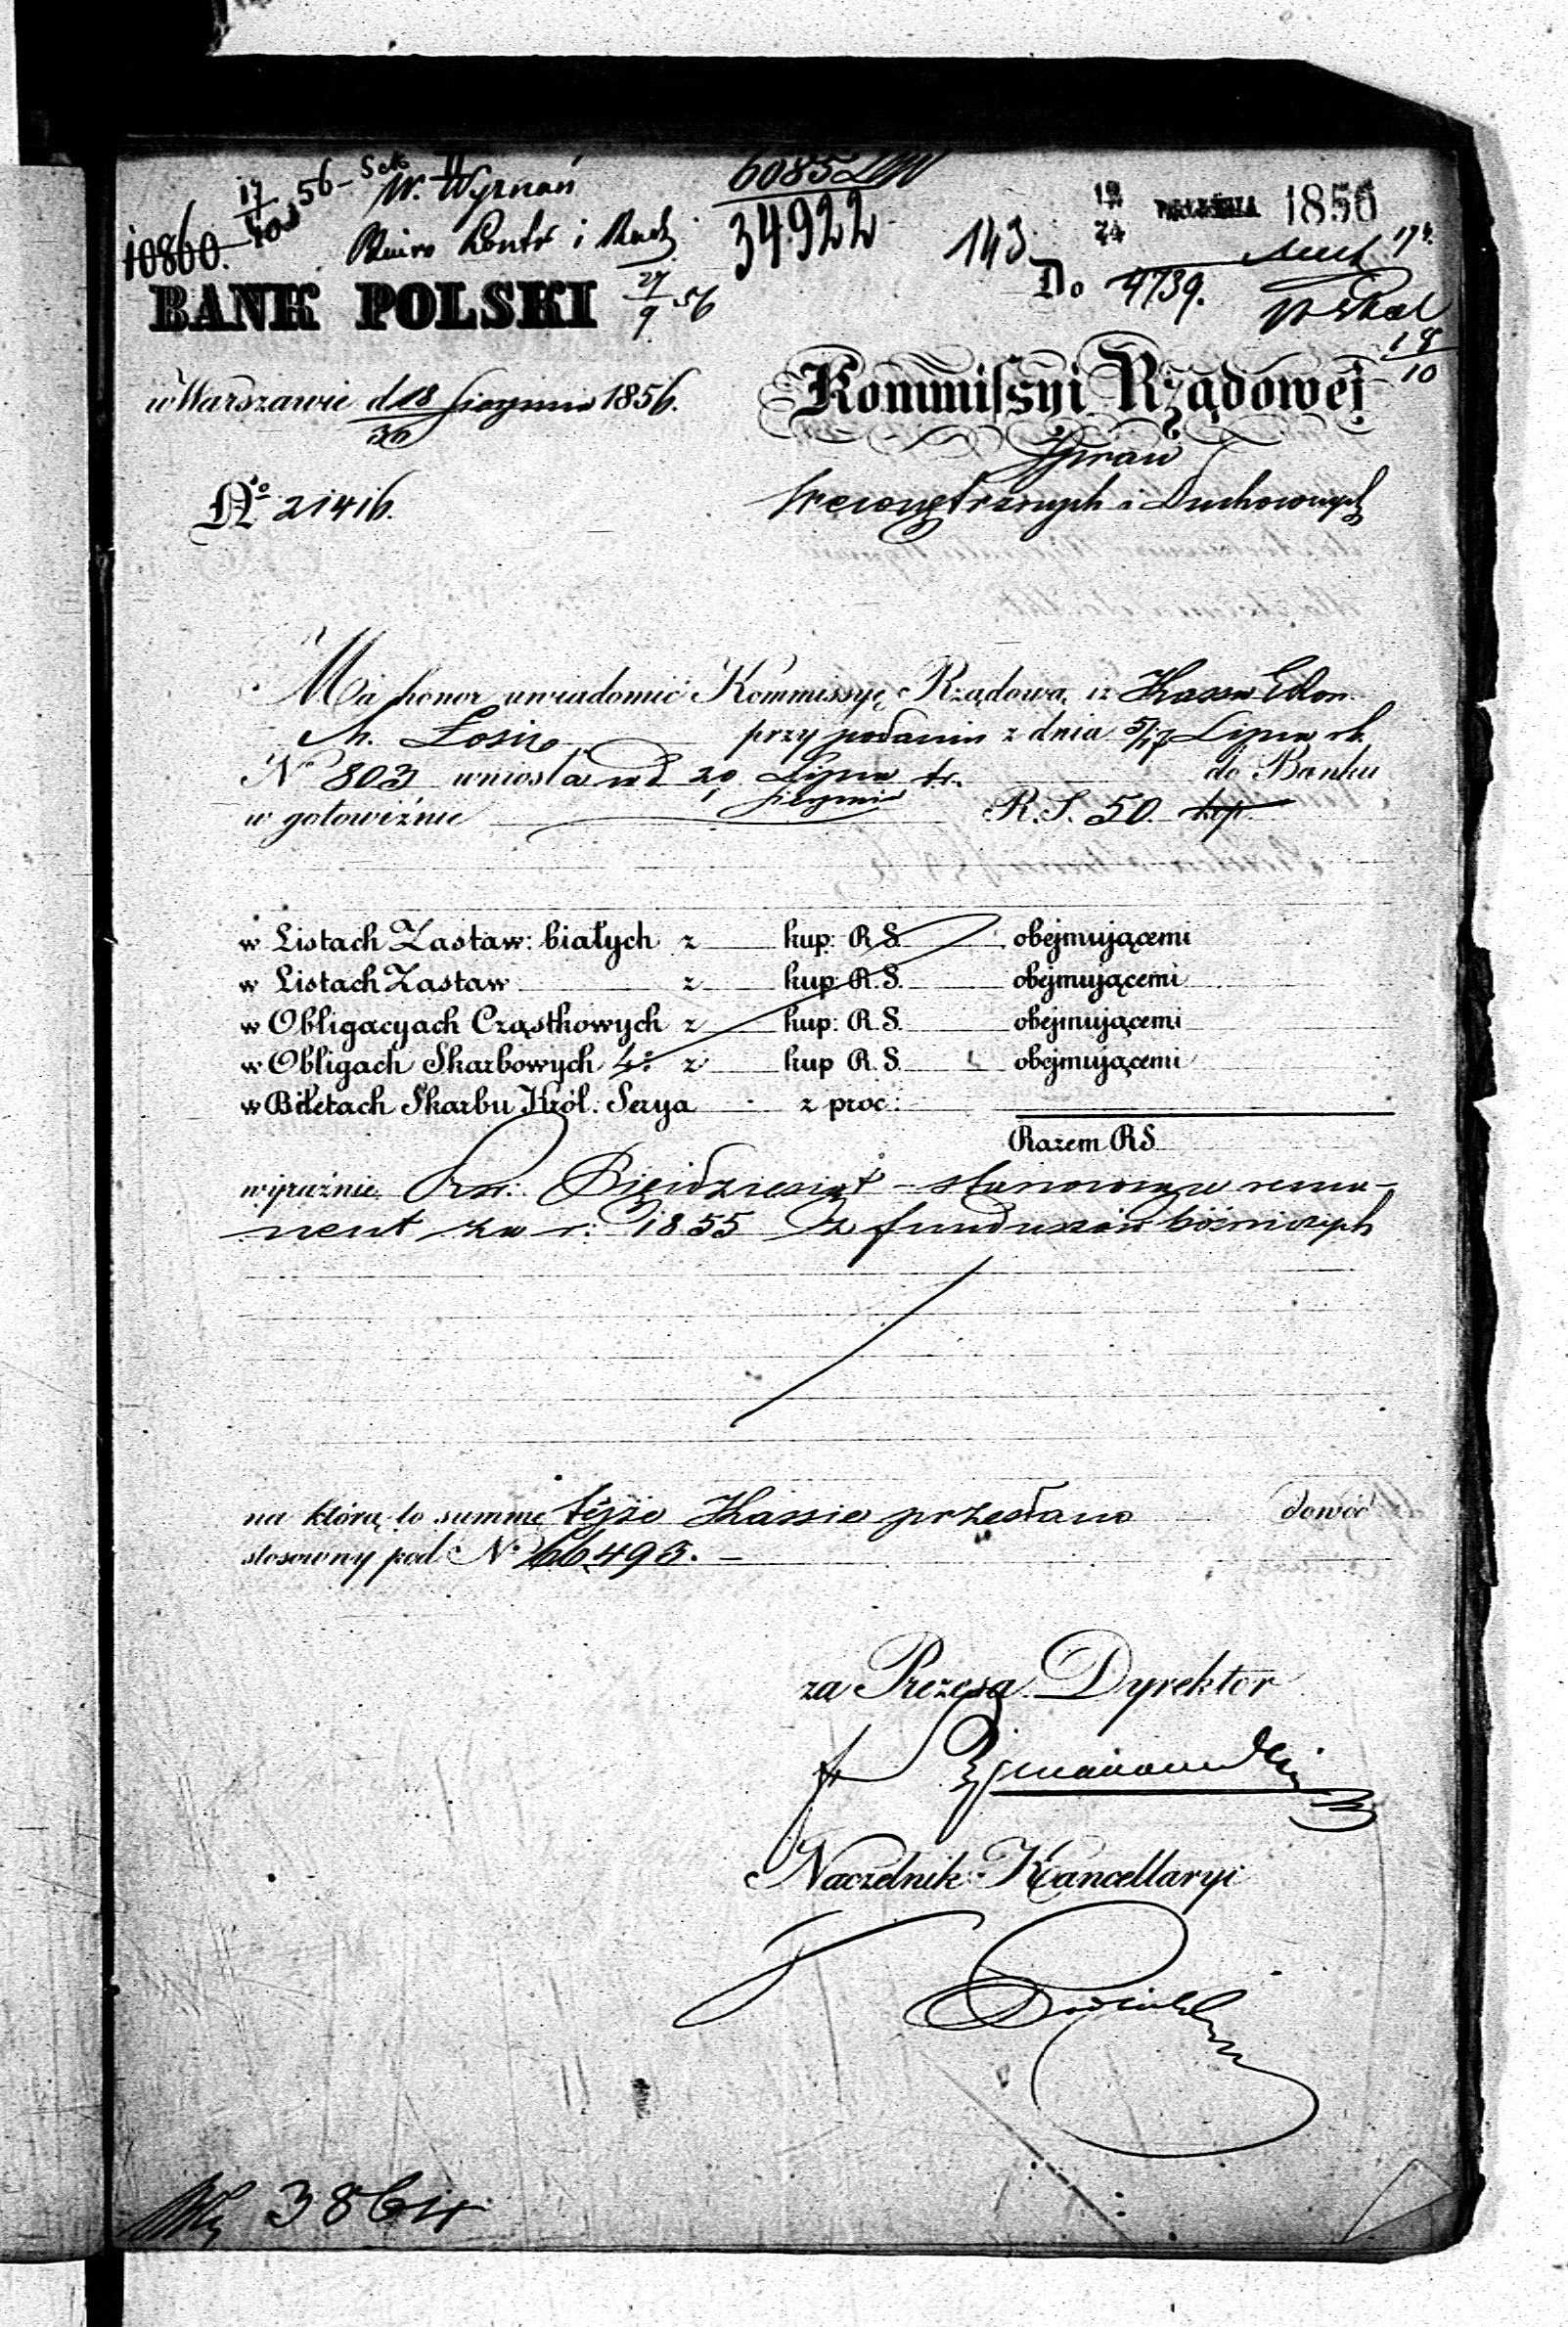 10860. 17/10 56 - W. Wyznań
6085
34922
143
12/24 WRZEŚNIA 1856
Biuro Kontr i Rach
27/9 56
BANK POLSKI
Do 4739.
18/10
w Warszawie d 18/30 Sierpnia 1856.
Kommissyi Rządowej
Spraw
Wewnętrznych i Duchownych
No 21416.
Ma honor uwiadomić Kommissyę Rządową, iż Kassa Ekon.
M. Łosice przy podaniu z dnia 5/17 Lipca rb.
No 803 wniosła pod 20 Lipca/1 Sierpnia br. do Banku
w gotowiźnie R.S. 50. kop.
w Listach Zastaw: białych z kup: R.S. obejmującemi
w Listach Zastaw z kup: R.S. obejmującemi
w Obligacyach Cząstkowych z kup: R.S. obejmującemi
w Obligach Skarbowych 4: z kup R.S. obejmującemi
w Biletach Skarbu Król. Serya z proc:
Razem RS
wyraźnie Rsr: Pięćdziesiąt - stanowiące rema-
nent za r: 1855 z funduszów bóżniczych
na którą to summę tejże Kassie przesłano dowód
stosowny pod No 66,493. -
za Prezesa Dyrektor
Naczelnik Kancellaryi
3864